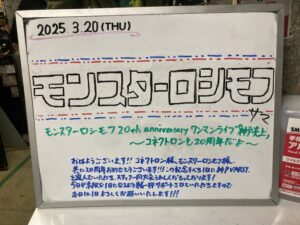 2025.3.20(THU)
モンスターロシモフ
サマ
モンスターロシモフ 20th anniversary ワンマンライブ"神戸炎上"
〜コネクトロンも20周年だよ〜
おはようございます!! コネクトロン様、モンスターロシモフ様、
共に20周年おめでとうございます!!この記念すべき1日に神戸VARIT.
を選んでいただき、スタッフ一同大変うれしく
サポートさせていただきますので
本日は1日よろしくお願いいたします!!!